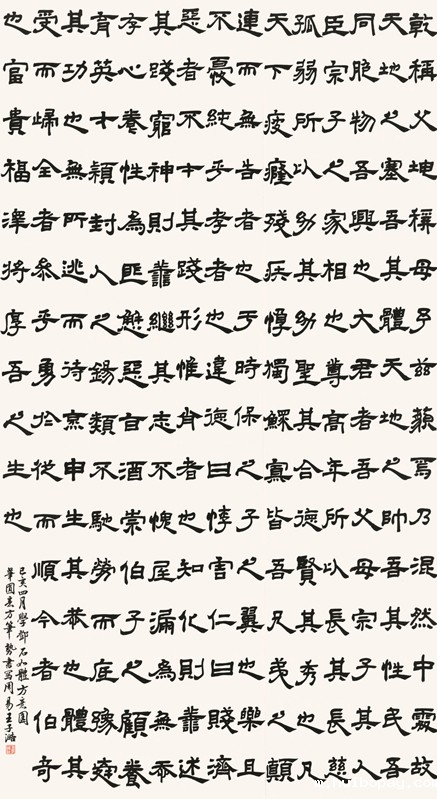 乾稱父坤稱母予茲藐焉乃混然中處故
天地之塞吾其體天地之帥吾其性民吾
同胞物吾與也大君者吾父母宗子其大
臣宗子之家相也尊高年所以長其長慈
孤弱所以幼其幼聖其合德賢其秀也凡
天下疲癃殘疾惸獨鰥寡皆吾兄弟之顛
連而無告者也于時保之子之翼也樂且
不憂純乎孝者也違德曰悖害仁曰賊濟
惡者不才其踐形惟肖者也知化則善述
其事窮神則善繼其志不愧屋漏為無忝
存心養性為匪懈惡旨酒崇伯子之顧養
育英才穎封人之錫類不弛勞而底豫舜
其功也無所逃而待烹申生其恭也體其
受而歸全者參乎勇於從而順令者伯奇
也富貴福澤將厚吾之生也
己亥四月學鄧石如體方意圓
筆圓意方筆勢書寫周易王子